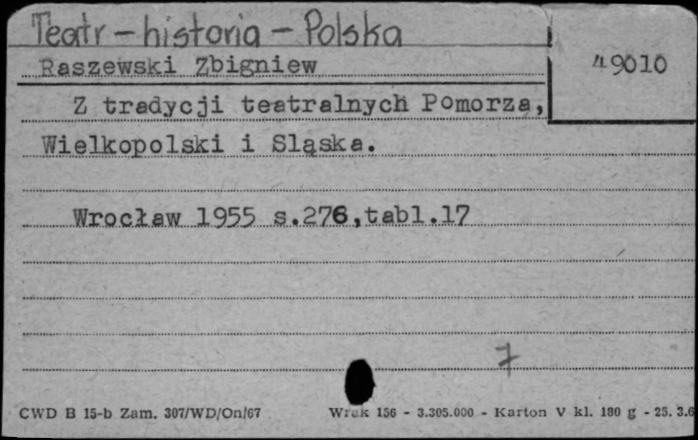 Teatr - historia - Polska
Raszewski Zbigniew
49010
Z tradycji teatralnych Pomorza,
Wielkopolski i Sląska.
Wrocław 1955 s.276,tabl.17
7
CWD B 15-b Zam. 307/WD/On/67 Wrak 156 - 3.305.000 - Karton V kl. 180 g - 25. 3.6